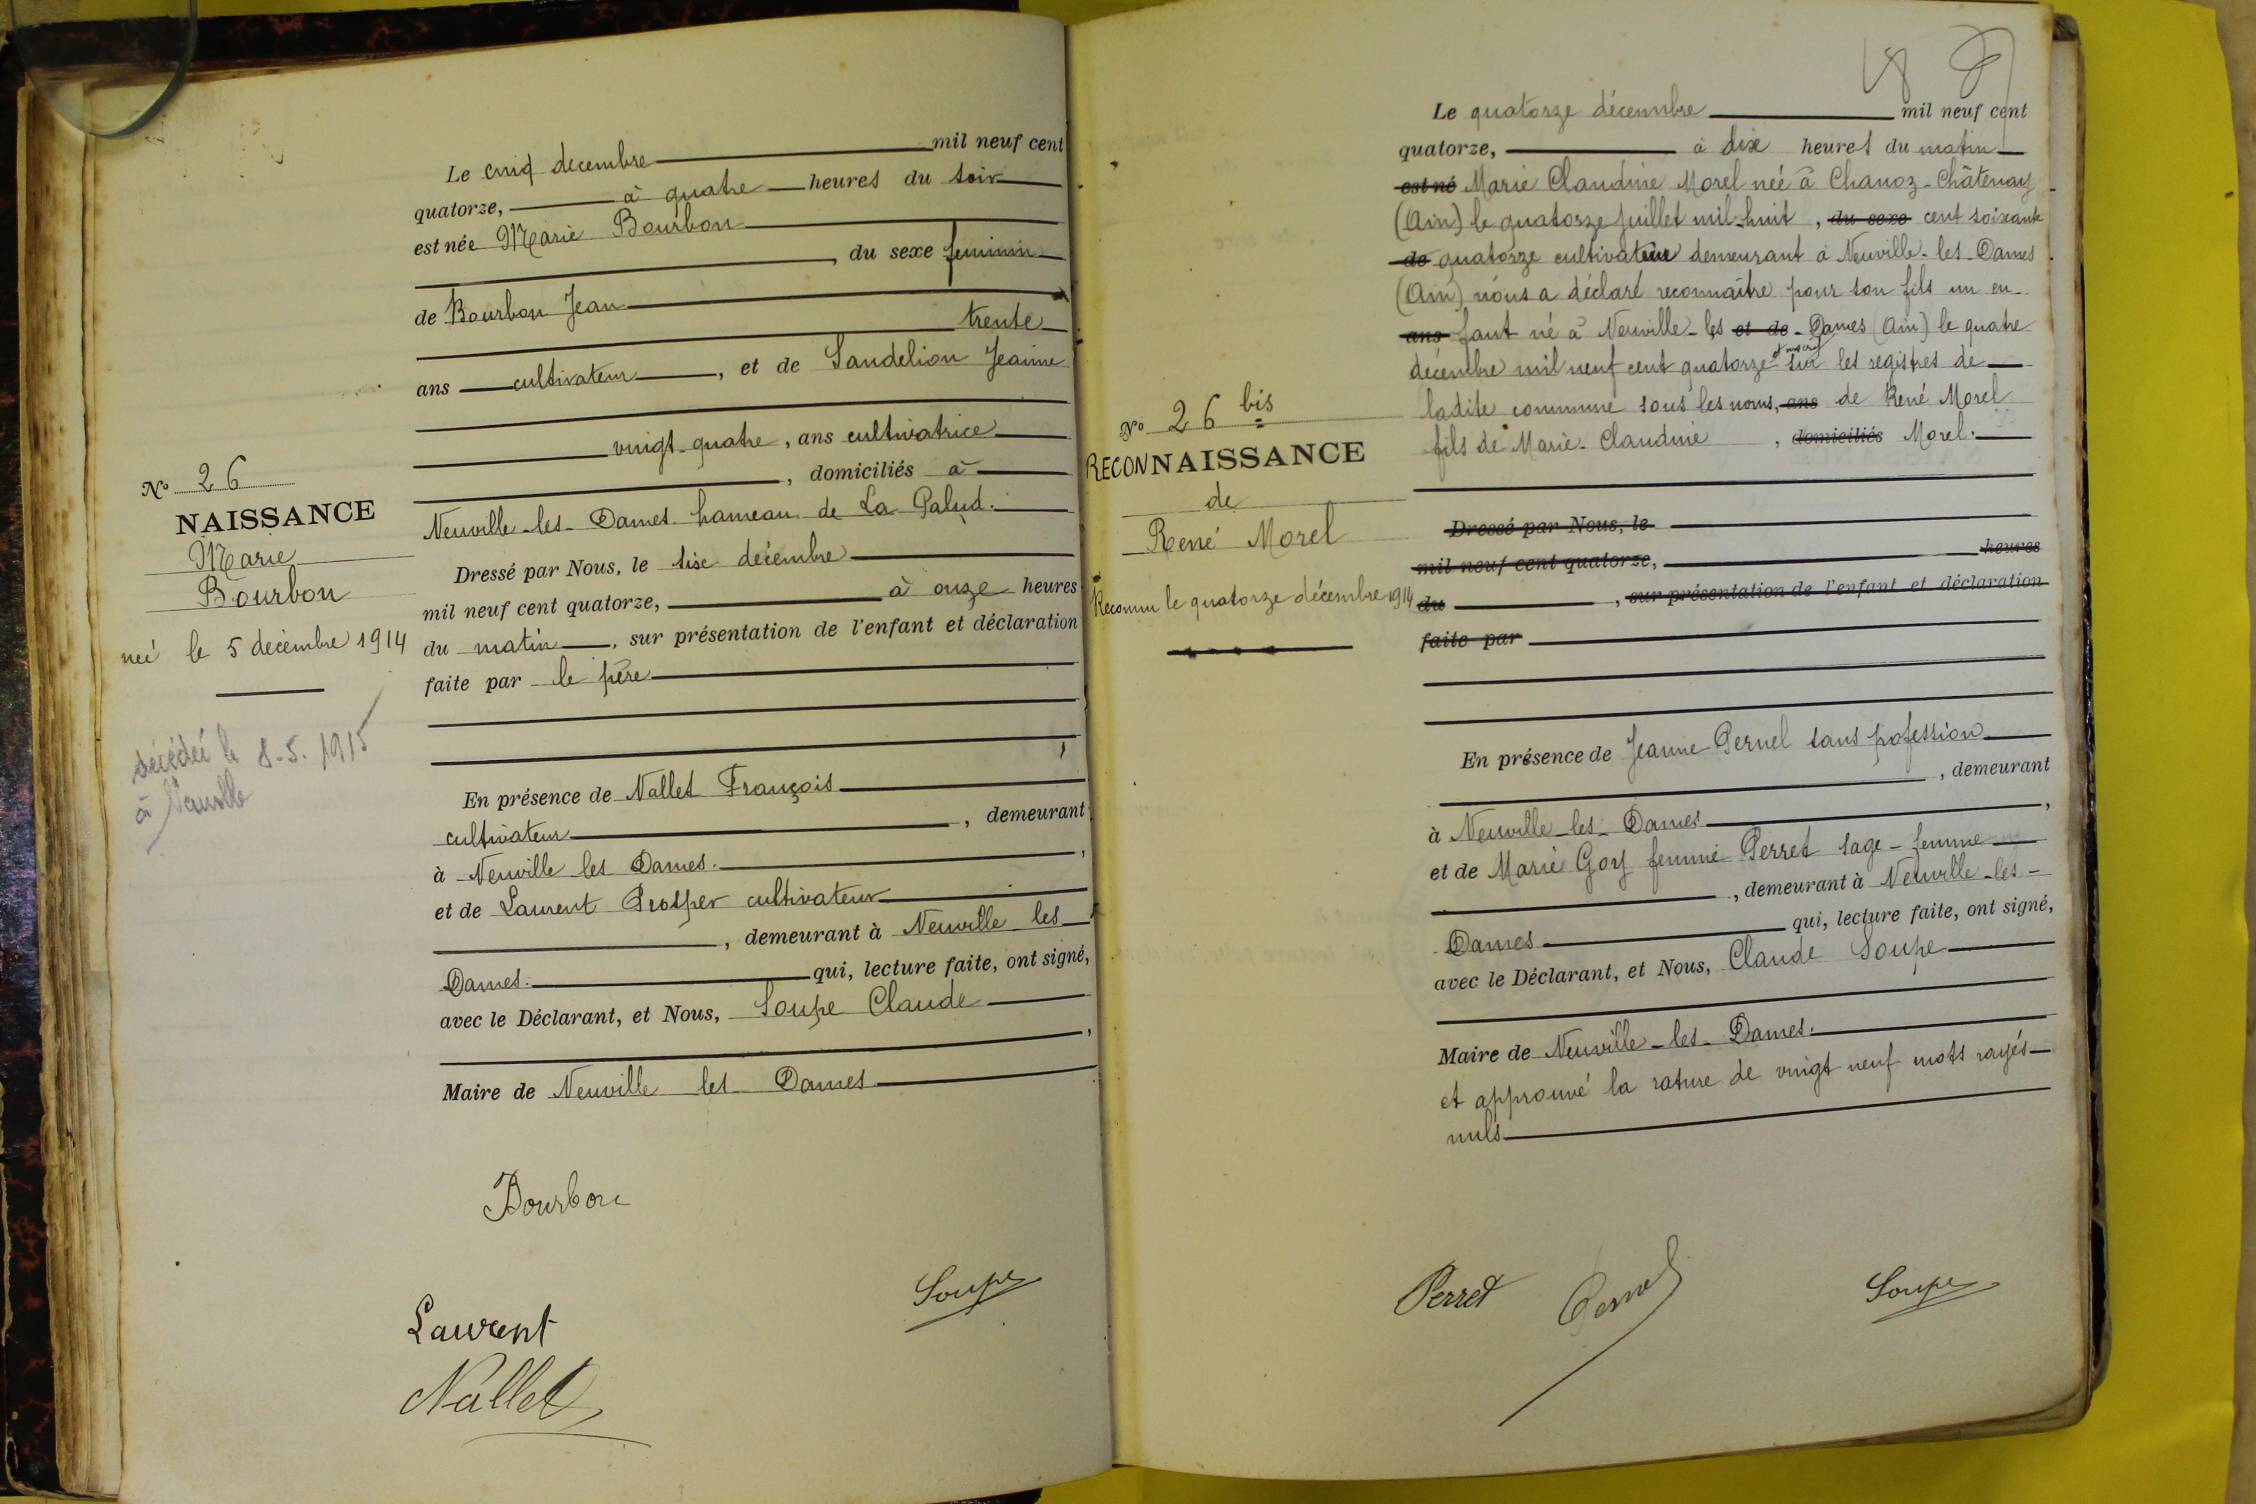 Le cinq décembre mil neuf cent
quatorze, à quatre heures du soir
est née Marie Bourbon
, du sexe feminin
de Bourbon Jean
trente
ans cultivateur, et de Sandelion Jeanne
vingt-quatre, ans cultivatrice
, domiciliés à
Neuville-les-Dames hameau de La Palud.
Dressé par Nous, le six décembre
mil neuf cent quatorze, à onze heures
du matin, sur présentation de l'enfant et déclaration
faite par le père
En présence de Nallet François
cultivateur, demeurant
à Neuville les Dames.,
et de Laurent Prosper cultivateur
, demeurant à Neuville les
Dames. qui, lecture faite, ont signé,
avec le Déclarant, et Nous, Soupe Claude
,
Maire de Neuville les Dames
Nº 26
NAISSANCE
Marie
Bourbon
née le 5 décembre 1914
décédée le 8-5. 1915
à Neuville
Bourbon
Soupe
Laurent
Nallet
Le quatorze décembre mil neuf cent
quatorze, à dix heures du matin
est né Marie Claudine Morel née à Chanoz-Châtenay
(Ain) le quatorze juillet mil-huit, du sexe cent soixante
de quatorze cultivateur demeurant à Neuville-les-Dames
(Ain) nous a déclaré reconnaître pour son fils un en-
ans fant né à Neuville-les et de -Dames (Ain) le quatre
décembre mil neuf cent quatorze sur les registres de
ladite commune sous les noms, ans de René Morel
fils de Marie-Claudine, domiciliés Morel.
Dressé par Nous, le
mil neuf cent quatorze, heures
du, sur présentation de l'enfant et déclaration
faite par
En présence de Jeanne Pernel sans profession
, demeurant
à Neuville-les-Dames,
et de Marie Goy femme Perret sage-femme
, demeurant à Neuville-les-
Dames qui, lecture faite, ont signé,
avec le Déclarant, et Nous, Claude Soupe
Maire de Neuville-les-Dames.
et approuvé la rature de vingt neuf mots rayés
nuls
Nº 26 bis
RECONNAISSANCE
de
René Morel
Reconnu le quatorze décembre 1914
Perret
Soupe